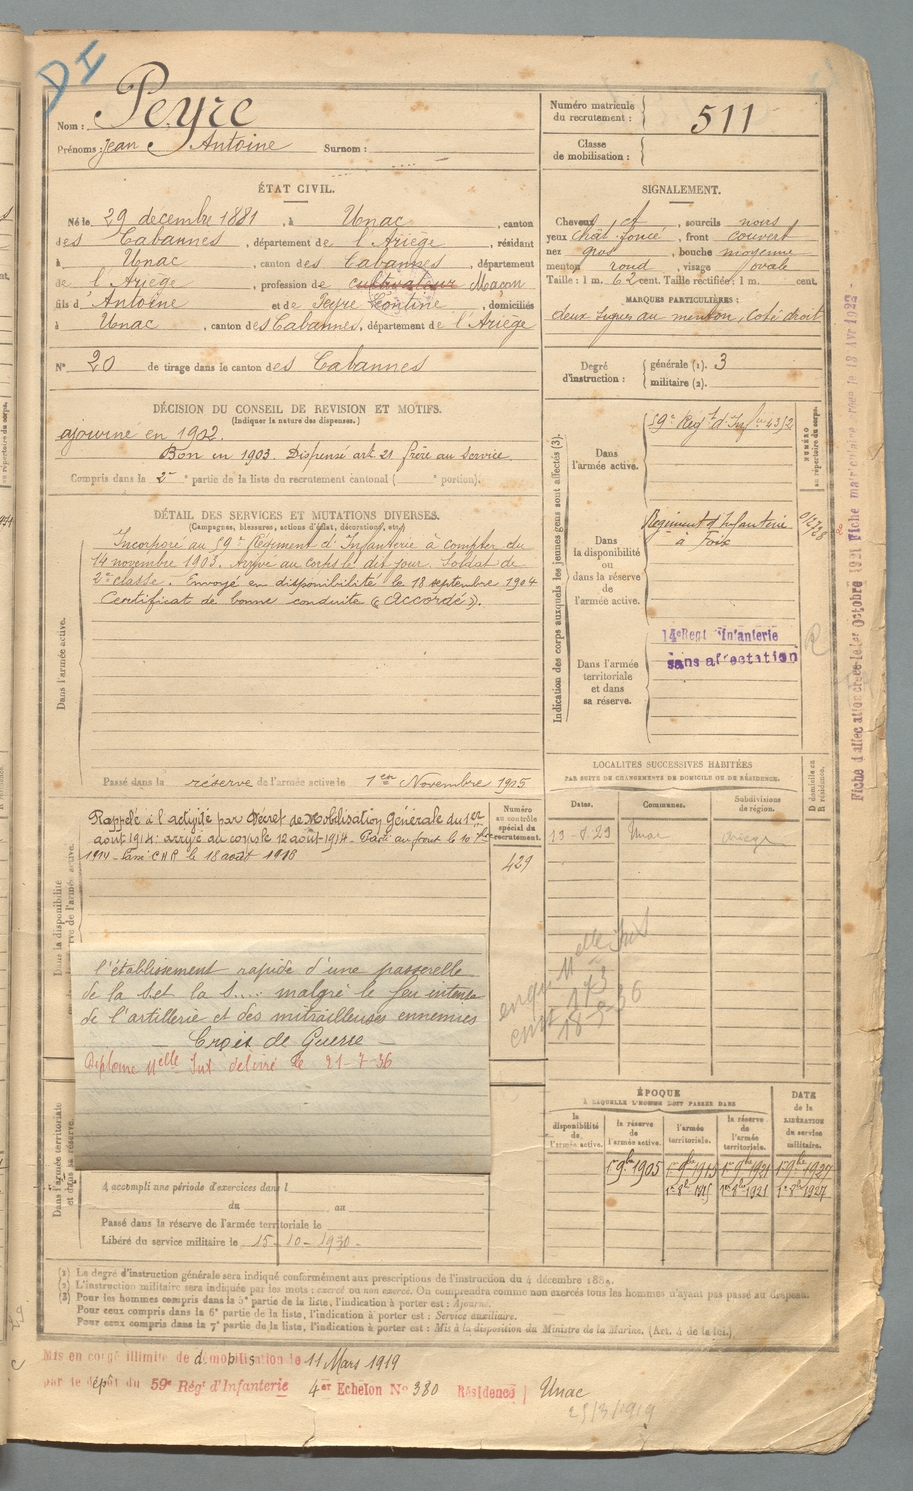 DI
Nom : Peyre
Prénoms : Jean Antoine Surnom :
Numéro matricule du recrutement : 511
Classe de mobilisation :
ÉTAT CIVIL.
Né le 29 decembre 1881, à Unac, canton
des Cabannes, département de l'Ariège, résidant
à Unac, canton des Cabannes, département
de l'Ariège, profession de cultivateur Maçon
fils d'Antoine et de Peyre Léontine, domiciliés
à Unac, canton des Cabannes, département de l'Ariège
N° 20 de tirage dans le canton des Cabannes
SIGNALEMENT.
Cheveux et, sourcils noirs
yeux chât. foncé, front couvert
nez gros, bouche moyenne
menton rond, visage ovale
Taille : 1 m. 62 cent. Taille rectifiée : 1 m. cent.
MARQUES PARTICULIÈRES :
deux signes au menton, coté droit
Degré d'instruction : générale (1). 3
militaire (2).
DÉCISION DU CONSEIL DE REVISION ET MOTIFS.
(Indiquer la nature des dispenses.)
ajourné en 1902.
Bon en 1903. Dispensé art. 21 frère au service.
Compris dans la 2e partie de la liste du recrutement cantonal ( portion).
DÉTAIL DES SERVICES ET MUTATIONS DIVERSES.
(Campagnes, blessures, actions d'éclat, décorations, etc.)
Dans l'armée active.
Incorporé au 59e Régiment d'Infanterie à compter du
14 novembre 1903. Arrivé au corps le dit jour. Soldat de
2e classe. Envoyé en disponibilité le 18 septembre 1904
Certificat de bonne conduite « Accordé ».
Passé dans la réserve de l'armée active le 1er Novembre 1905
Indication des corps auxquels les jeunes gens sont affectés (3).
NUMÉRO au répertoire du corps.
Dans l'armée active.
59e Régt d'Infie 4352
Dans la disponibilité ou dans la réserve de l'armée active.
Régiment d'Infanterie
à Foix
Dans l'armée territoriale et dans sa réserve.
14e Regt d'Infanterie
sans affectation
Fiche d'affectation créée le 1er Octobre 1921
Fiche matriculaire créée le 18 Avr 1922
LOCALITÉS SUCCESSIVES HABITÉES
PAR SUITE DE CHANGEMENTS DE DOMICILE OU DE RÉSIDENCE.
Dates. Communes. Subdivisions de région. D domicile ou R résidence.
Unac Ariège
Dans la disponibilité
Rappelé à l'activité par Décret de Mobilisation Générale du 1er
août 1914 : arrivé au corps le 12 août 1914 - Parti au front le 10 7bre
1914 - Passé CHR le 18 août 1916
Numéro au contrôle spécial du recrutement.
429
l'établissement rapide d'une passerelle
de la S.et la S.... malgré le feu intense
de l'artillerie et des mitrailleuses ennemies
- Croix de Guerre -
Diplôme Melle Inf délivré le 21-7-36
Dans l'armée territoriale et dans sa réserve.
A accompli une période d'exercices dans l
du au
Passé dans la réserve de l'armée territoriale le
Libéré du service militaire le 15-10-1930-
ÉPOQUE
À LAQUELLE L'HOMME DOIT PASSER DANS
DATE de la LIBÉRATION du service militaire.
la disponibilité de l'armée active. la réserve de l'armée active. l'armée territoriale. la réserve de l'armée territoriale.
1er 9bre 1905 1er 9bre 1915 1er 9bre 1921 1er 9bre 1927
(1) Le degré d'instruction générale sera indiqué conformément aux prescriptions de l'instruction du 4 décembre 1889.
(2) L'instruction militaire sera indiquée par les mots : exercé ou non exercé. On comprendra comme non exercés tous les hommes n'ayant pas passé au drapeau.
(3) Pour les hommes compris dans la 5e partie de la liste, l'indication à porter est : Ajourné.
Pour ceux compris dans la 6e partie de la liste, l'indication à porter est : Service auxiliaire.
Pour ceux compris dans la 7e partie de la liste, l'indication à porter est : Mis à la disposition du Ministre de la Marine. (Art. 4 de la loi.)
Mis en congé illimité de démobilisation le 11 Mars 1919
par le dépôt du 59e Régt d'Infanterie 4er Echelon N° 380 Résidence Unac
25/3/1919